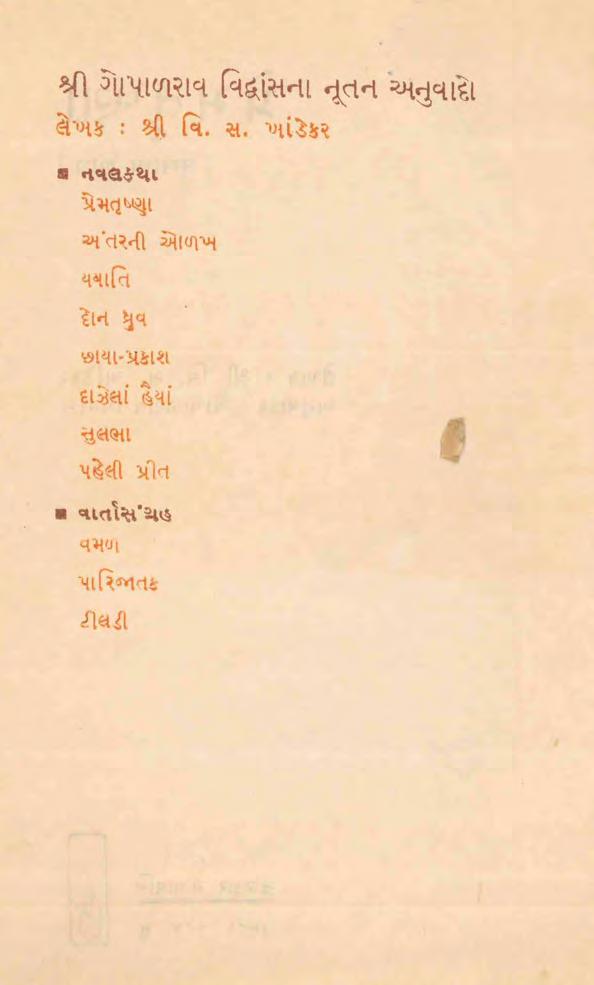 શ્રી ગોપાળરાવ વિદ્વાંસના નૂતન અનુવાદો
લેખક : શ્રી વિ. સ. ખાંડેકર
■ નવલકથા
પ્રેમતૃષ્ણા
અંતરની ઓળખ
યયાતિ
દોન ધ્રુવ
છાયા-પ્રકાશ
દાઝેલાં હૈયાં
સુલભા
પહેલી પ્રીત
■ વાર્તાસંગ્રહ
વમળ
પારિજાતક
ટીલડી